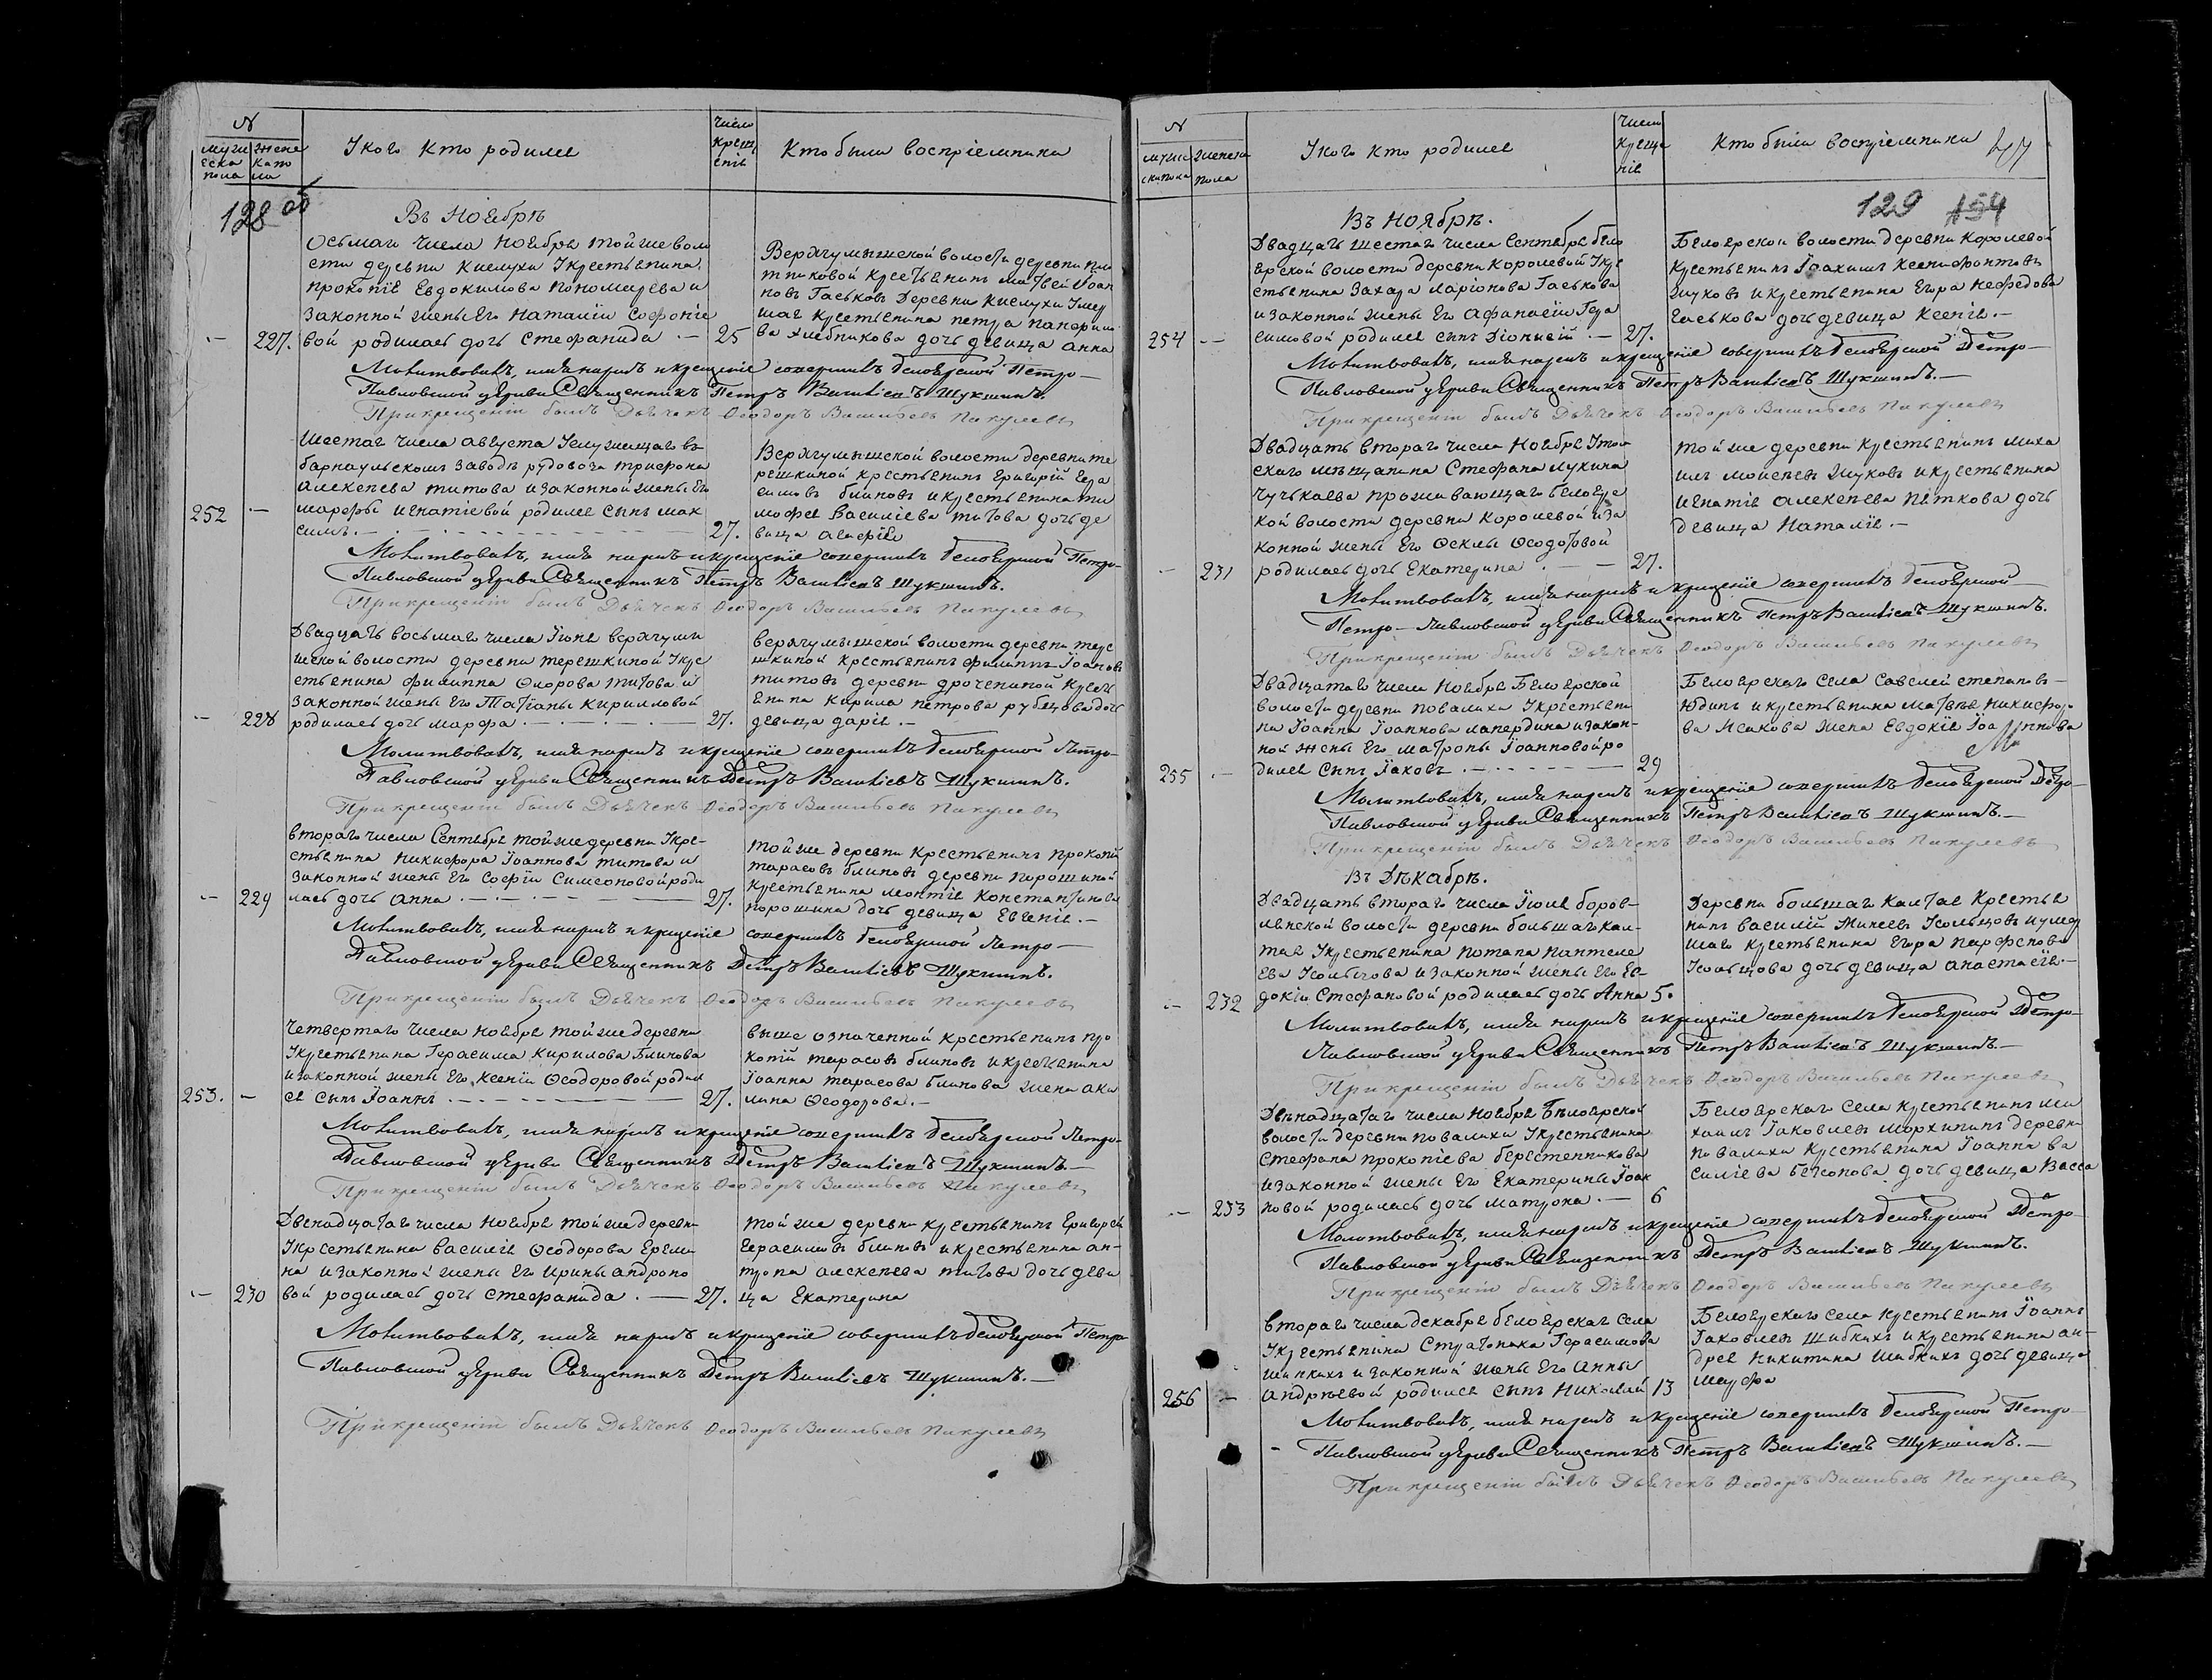 N
мужеска пола
женска пола
Укого кто родился
Число крещенія
Кто были воспріемники
128 об
Въ Ноябрѣ
Осьмаго числа Ноября той же воло
сти деревни Кислухи Укрестьянина
прокопія Евдокимова Пономарева и
законной жены Его Наталіи Софоніе
– 227. вой родилась дочь Стефанида . — 25
Верхчумышской волости деревни
крестьянинъ матвей Іоан
новъ Гаськовъ Деревни Кислухи Умер
шаго крестьянина петра
ва хлебникова дочь девица анна
Молитвовалъ, имя нарекъ и крещеніе совершилъ Белоярской Петро-
Павловской церкви Священникъ Петръ Васильевъ Шукшинъ.
При крещеніи былъ Дьячекъ Ѳеодоръ Васильевъ Пикулевъ
Шестаго числа августа Услужащаго въ
барнаульскомъ заводѣ рудовоза трифона
алексеева титова и законной жены Его
252 – марфы игнатіевой родился сынъ мак
симъ. — 27.
Верхчумышской волости деревни те
решкиной крестьянинъ григорій Гера
симовъ блиновъ и крестьянина ти
мофея василіева титова дочь де
вица агафія
Молитвовалъ, имя нарекъ и крещеніе совершилъ Белоярской Петро-
Павловской церкви Священникъ Петръ Васильевъ Шукшинъ.
При крещеніи былъ Дьячекъ Ѳеодоръ Васильевъ Пикулевъ
Двадцать восьмаго числа Іюня верхчумы
шской волости деревни терешкиной Укре
стьянина филиппа Ѳиорова титова и
законной жены Его Татіаны Кирилловой
– 228 родилась дочь марфа . — 27.
верхчумышской волости деревни тере
шкиной крестьянинъ филиппъ Іоановъ
титовъ деревни дрочениной крест
янина Кирила петрова рубцова дочь
девица дарія . —
Молитвовалъ, имя нарекъ и крещеніе совершилъ Белоярской Петро-
Павловской церкви Священникъ Петръ Васильевъ Шукшинъ.
При крещеніи былъ Дьячекъ Ѳеодоръ Васильевъ Пикулевъ
втораго числа Сентября той же деревни Укре-
стьянина Никифора Іоаннова титова и
законной жены Его Софіи Симеоновой роди
– 229 лась дочь анна . — 27.
той же деревни крестьянинъ прокопій
тарасовъ блиновъ деревни порошиной
крестьянина леонтія константинова
порошина дочь девица Евгенія . —
Молитвовалъ, имя нарекъ и крещеніе совершилъ Белоярской Петро-
Павловской церкви Священникъ Петръ Васильевъ Шукшинъ.
При крещеніи былъ Дьячекъ Ѳеодоръ Васильевъ Пикулевъ
четвертаго числа ноября той же деревни
Укрестьянина Герасима кирилова блинова
и законной жены Его Ксеніи Ѳеодоровой родил
253. – ся сынъ Іоаннъ . — 27.
выше означенной крестьянинъ про
копій тарасовъ блиновъ и крестьянина
Іоанна тарасова блинова жена аки
лина Ѳеодорова. —
Молитвовалъ, имя нарекъ и крещеніе совершилъ Белоярской Петро-
Павловской церкви Священникъ Петръ Васильевъ Шукшинъ. —
При крещеніи былъ Дьячекъ Ѳеодоръ Васильевъ Пикулевъ
Двенадцатаго числа ноября той же деревни
Укрестьянина василія Ѳеодорова Ереми
на и законной жены Его ирины андроно
– 230 вой родилась дочь Стефанида . — 27.
той же деревни крестьянинъ григорей
герасимовъ блиновъ и крестьянина ан-
тропа алексеева титова дочь деви
ца Екатерина
Молитвовалъ, имя нарекъ и крещеніе совершилъ Белоярской Петро-
Павловской церкви Священникъ Петръ Васильевъ Шукшинъ. —
При крещеніи былъ Дьячекъ Ѳеодоръ Васильевъ Пикулевъ
N
мужеска пола
женска пола
Укого кто родился
Число крещенія
Кто были воспріемники
129 154
Въ Ноябрѣ.
Двадцать шестаго числа Сентября бело
ярской волости деревни Королевой Укре
стьянина Захара ларіонова Гаськова
и законной жены Его афанасіи Гера
254 – – симовой родился сынъ Діонисій . — 27.
Белоярской волости деревни королевой
крестьянинъ Іоакимъ Ксенифонтовъ
жуковъ и крестьянина Егора нефедова
гаськова дочь девица Ксенія. —
Молитвовалъ, имя нарекъ и крещеніе совершилъ Белоярской Петро-
Павловской церкви Священникъ Петръ Васильевъ Шукшинъ. —
При крещеніи былъ Дьячекъ Ѳеодоръ Васильевъ Пикулевъ
Двадцать втораго числа Ноября Утом
скаго мѣщанина Стефана лукина
чучкаева проживающаго белояр
кой волости деревни королевой и за
конной жены Его Ѳеклы Ѳеодотовой
– 231 родилась дочь Екатерина . — 27.
той же деревни крестьянинъ миха
илъ моисеевъ жуковъ и крестьянина
игнатія алексеева пяткова дочь
девица наталія . —
Молитвовалъ, имя нарекъ и крещеніе совершилъ Белоярской
Петро-Павловской церкви Священникъ Петръ Васильевъ Шукшинъ.
При крещеніи былъ Дьячекъ Ѳеодоръ Васильевъ Пикулевъ
Двадцатаго числа Ноября Белоярской
волости деревни повалихи Укрестьяни
на Іоанна Іоаннова лапердина и закон-
ной жены Его матроны Іоанновой ро
255 – дился сынъ Іаковъ . — 29
Белоярскаго села Савелей степановъ
Юдинъ и крестьянина матвѣя никифоро
ва исакова жена Евдокія Іоаннова
Молитвовалъ, имя нарекъ и крещеніе совершилъ Белоярской Петро-
Павловской церкви Священникъ Петръ Васильевъ Шукшинъ. —
При крещеніи былъ Дьячекъ Ѳеодоръ Васильевъ Пикулевъ
Въ Дѣкабрѣ.
Двадцать втораго числа Іюля боров-
лянской волости деревни большаго кал-
тая Укрестьянина потапа пантеле
ева Усольцова и законной жены Его Ев
– 232 докіи Стефановой родилась дочь Анна 5.
Деревни большаго Калтая крестья
нинъ василій Минеевъ Усольцовъ и умер
шаго крестьянина Егора парфенова
Усольцова дочь девица анастасія. —
Молитвовалъ, имя нарекъ и крещеніе совершилъ Белоярской Петро-
Павловской церкви Священникъ Петръ Васильевъ Шукшинъ. —
При крещеніи былъ Дьячекъ Ѳеодоръ Васильевъ Пикулевъ
Двѣнадцатаго числа ноября Бѣлоярской
волости деревни повалихи Укрестьянина
Стефана прокопіева берестенникова
и законной жены Его Екатерины Іоан
– 233 новой родилась дочь матрона . — 6
Белоярскаго села крестьянинъ ми
хаилъ Іаковлевъ морхининъ деревни
повалихи крестьянина Іоанна ва
силіева дочь девица Васса
Молитвовалъ, имя нарекъ и крещеніе совершилъ Белоярской Петро-
Павловской церкви Священникъ Петръ Васильевъ Шукшинъ.
При крещеніи былъ Дьячекъ Ѳеодоръ Васильевъ Пикулевъ
втораго числа декабря белоярскаго села
Укрестьянина Стратоника Герасимова
и законной жены Его анны
256 – андрѣевой родился сынъ николай 13
Белоярскаго села крестьянинъ Іоаннъ
Іаковлевъ шибкихъ и крестьянина ан-
дрея никитина шибкихъ дочь девица
марфа
Молитвовалъ, имя нарекъ и крещеніе совершилъ Белоярской Петро-
Павловской церкви Священникъ Петръ Васильевъ Шукшинъ. —
При крещеніи былъ Дьячекъ Ѳеодоръ Васильевъ Пикулевъ